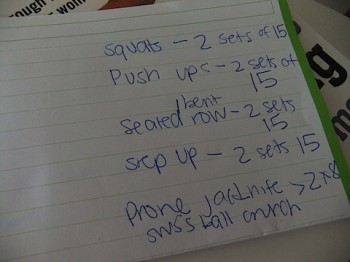 squats - 2 sets of 15
Push ups - 2 sets of
15
bent
seated row - 2 sets
15
step up - 2 sets 15
prone jacknife > 2x8
swss ball crunch